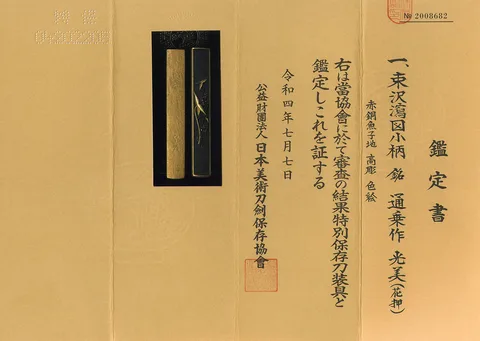 № 2008682
鑑定書
一、束沢瀉図小柄 銘 通乗作 光美(花押)
赤銅魚子地 高彫 色絵
右は當協會に於て審査の結果特別保存刀装具と
鑑定しこれを証する
令和四年七月七日
公益財團法人日本美術刀劍保存協會